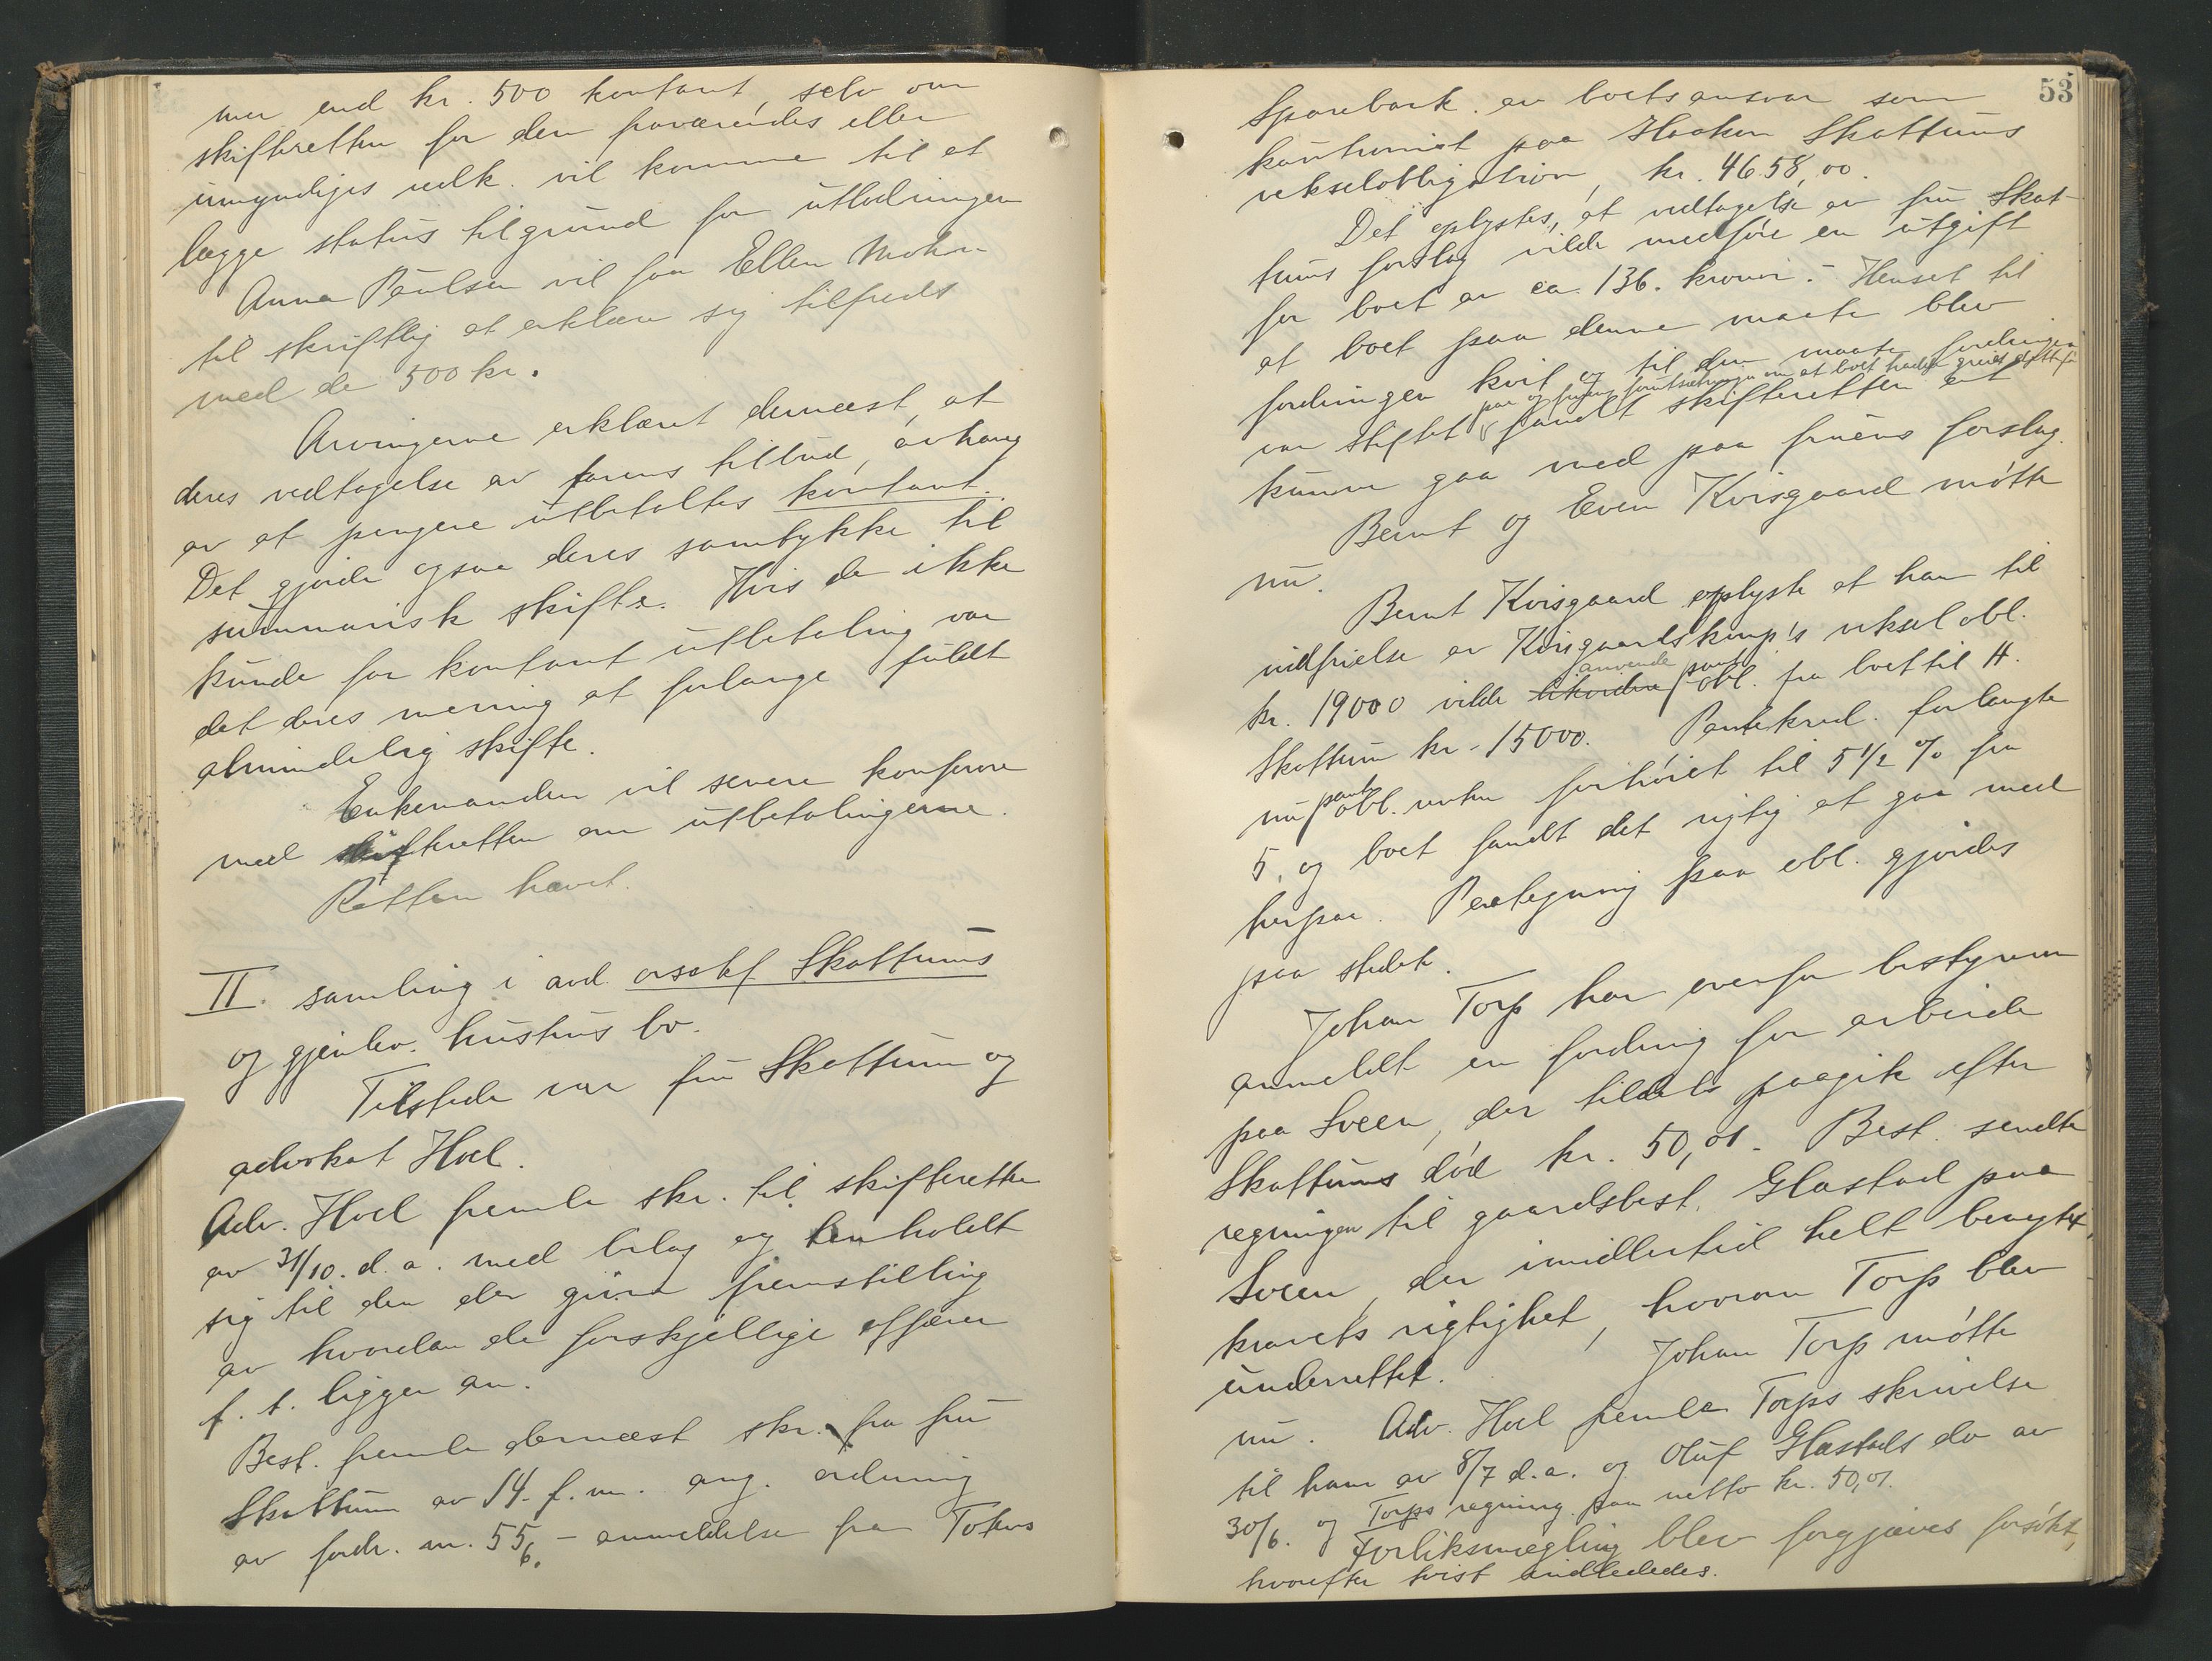 mer end kr. 500 kontant, selv om
skifteretten for den fraværendes eller
umyndiges vedk. vil komme til at
lægge status tilgrund for utlodningen
Anna Paulsen vil faa Ellen Mohn
til skriftlig at erklære sig tilfreds
med de 500 kr.
Arvingerne erklæret dernæst, at
deres vedtagelse av farens tilbud, avhang
av at pengene utbetaltes kontant.
Det gjorde ogsaa deres samtykke til
summarisk skifte. Hvis de ikke
kunde faa kontant utbetaling var
det deres mening at forlange fuldt
almindelig skifte.
Enkemanden vil senere konferere
med skifteretten om utbetalingerne.
Retten hævet.
II. samling i avd. Skattums
og gjenlev. hustrus bo.
Tilstede var fru Skattum og
advokat Hoel.
Adv. Hoel fremla skr. til skifteretten
av 31/10. d. a. med bilag og henholdt
sig til den der givne fremstilling
av hvordan de forskjellige affærer
f. t. ligger an.
Best. fremla dernæst skr. fra fru
Skattum av 14. f. m. ang. ordning
av fordr. nr. 55 6. - anmeldelse fra Totens
53
Sparebank av boets ansvar som
kautionist paa Haakon Skattums
vekselobligation, kr. 4658,00.
Det oplystes, at vedtagelse av fru Skat-
tums forslag vilde medføre en utgift
for boet av ca. 136. kroner. - Henset til
at boet paa denne maate blev
fordringen kvit og til den maate fordringen
paa og fruens forutsætninger om at boet hadde greiet
var stiftet fandt skifteretten at
kunne gaa med paa fruens forslag.
Bernt og Even Kvisgaard møtte
nu.
Bernt Kvisgaard oplyste at han til
indfrielse av Kvisgaards veksel obl.
kr. 19000 vilde likvidere anvende pant obl. fra boet til H.
Skattum kr. 15000. Pantekred. forlangte
nu pant obl. renten forhøiet til 5 1/2 % fra
5, og boet fandt det rigtig at gaa med
herpaa. Paategning paa obl. gjordes
paa stedet.
Johan Torp har overfor bestyreren
anmeldt en fordring for arbeide
paa Sveen, der tildels paagik efter
Skattums død kr. 50,01. Best. sendte
regningen til gaardsbest. Glastad paa
Sveen, der imidlertid helt benegtet
kravets rigtighet, hvorom Torp blev
underrettet. Johan Torp møtte
nu. Adv. Hoel fremla Torps skrivelse
til ham av 8/7 d. a. og Oluf Glastads do av
30/6. og Torps regning paa netto kr. 50,01.
Forliksmægling blev forgjæves forsøkt,
hvorefter tvist indlededes.